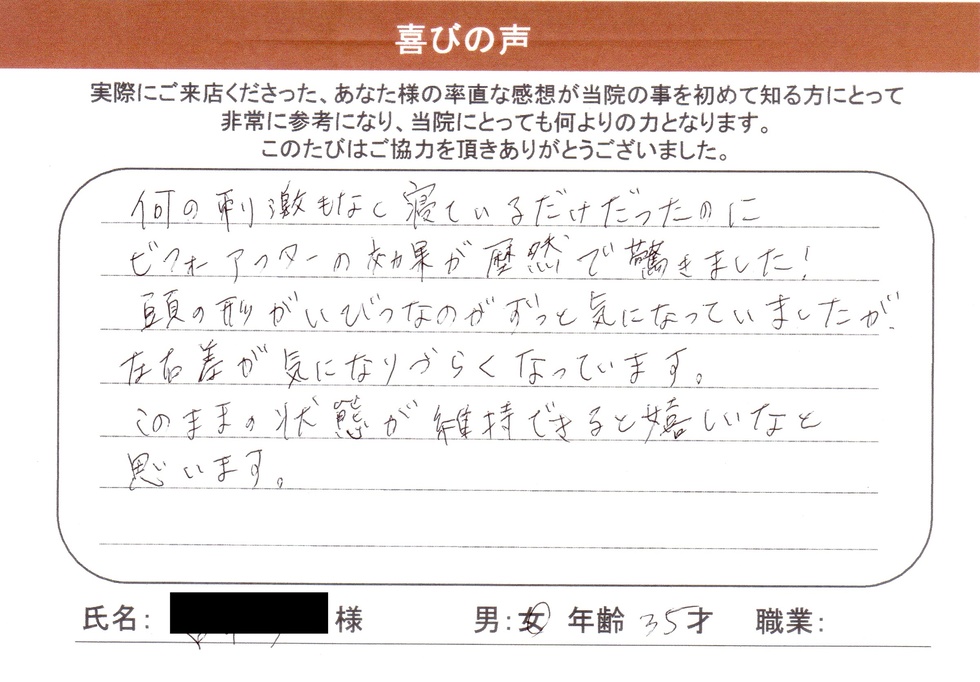 喜びの声
実際にご来店くださった、あなた様の率直な感想が当院の事を初めて知る方にとって
非常に参考になり、当院にとっても何よりの力となります。
このたびはご協力を頂きありがとうございました。
何の刺激もなく寝ているだけだったのに
ビフォーアフターの効果が歴然で驚きました!
頭の形がいびつなのがずっと気になっていましたが、
左右差が気になりづらくなっています。
このままの状態が維持できると嬉しいなと
思います。
氏名: 様 男:女 年齢 35才 職業: